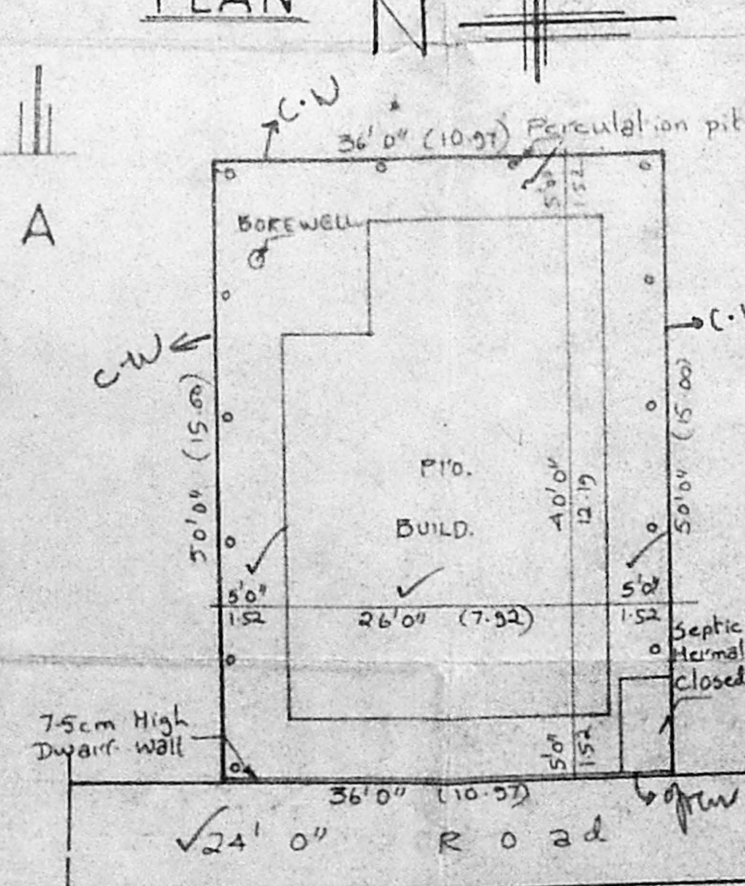 PLAN
N
C.W
36'0" (10.97)
Perculation pit
5'0"
1.52
A
BOREWELL
C.W
C.
50'0" (15.00)
50'0" (15.00)
PTO.
BUILD.
40'0"
12.19
5'0"
1.52
26'0" (7.92)
5'0"
1.52
Septic
Hermal
closed
7.5cm High
Dwarf Wall
5'0"
1.52
36'0" (10.97)
24' 0" Road